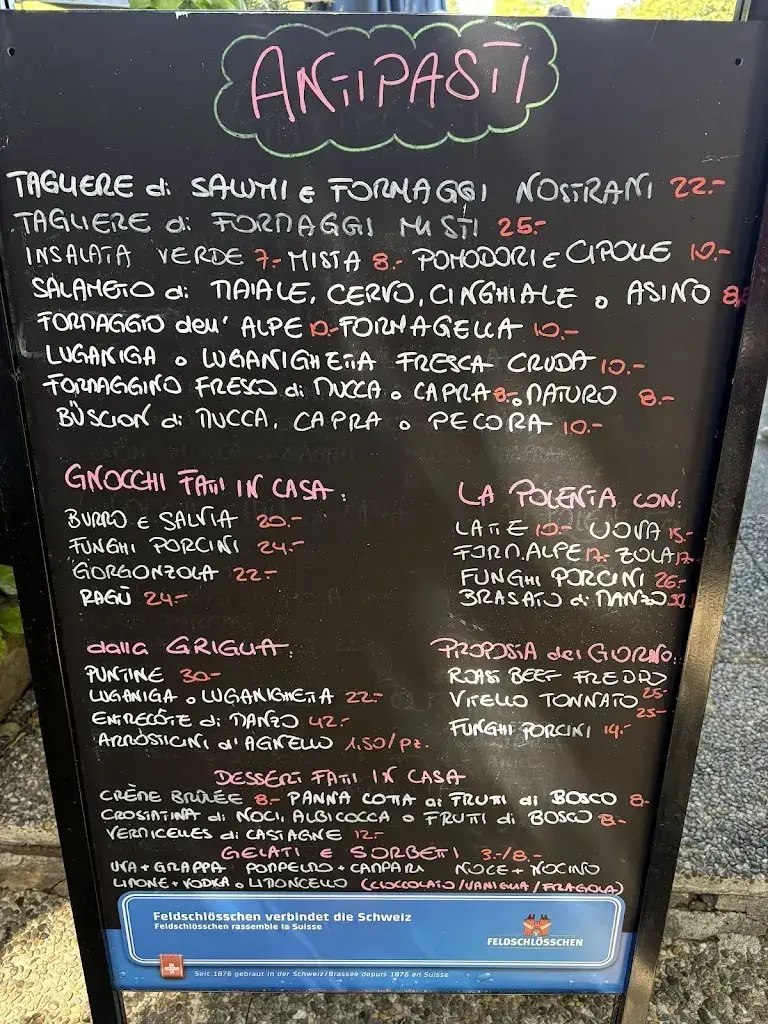 ANTIPASTI
TAGLIERE di SALUMI E FORMAGGI NOSTRANI 22.-
TAGLIERE di FORMAGGI MISTI 25.-
INSALATA VERDE 7.- MISTA 8.- POMODORI E CIPOLLE 10.-
SALAMETO di MAIALE, CERVO, CINGHIALE o ASINO
FORMAGGIO dell' ALPE 10.- FORMAGELLA 10.-
LUGANIGA o LUGANIGHETTA FRESCA CRUDA 10.-
FORMAGGINO FRESCO di MUCCA o CAPRA 8.- o MATURO 8.-
BÜSCION di MUCCA, CAPRA o PECORA 10.-
GNOCCHI FATTI IN CASA:
BURRO E SALVIA 20.-
FUNGHI PORCINI 24.-
GORGONZOLA 22.-
RAGÙ 24.-
LA POLENTA CON:
LATTE 10.- UOVA 15.-
FORM.ALPE 17.- ZOLA 17.-
FUNGHI PORCINI 26.-
BRASATO di MANZO
dalla GRIGLIA:
PUNTINE 30.-
LUGANIGA o LUGANIGHETTA 22.-
ENTRECÔTE di MANZO 42.-
ARROSTICINI d'AGNELLO 1.50/PZ.
PROPOSTA del GIORNO:
ROAST BEEF FREDDO 25.-
VITELLO TONNATO 25.-
FUNGHI PORCINI 14.-
DESSERT FATTI IN CASA
CRÈME BRÛLÉE 8.- PANNA COTTA ai FRUTTI di BOSCO 8.-
CROSTATINA di NOCI, ALBICOCCA o FRUTTI di BOSCO 8.-
VERMICELLES di CASTAGNE 12.-
GELATI E SORBETTI 3.-/8.-
UVA + GRAPPA POMPELMO + CAMPARI NOCE + NOCINO
LIMONE + VODKA o LIMONCELLO (CIOCCOLATO/VANIGLIA/FRAGOLA)
Feldschlösschen verbindet die Schweiz
Feldschlösschen rassemble la Suisse
FELDSCHLÖSSCHEN
Seit 1876 gebraut in der Schweiz/Brassée depuis 1876 en Suisse